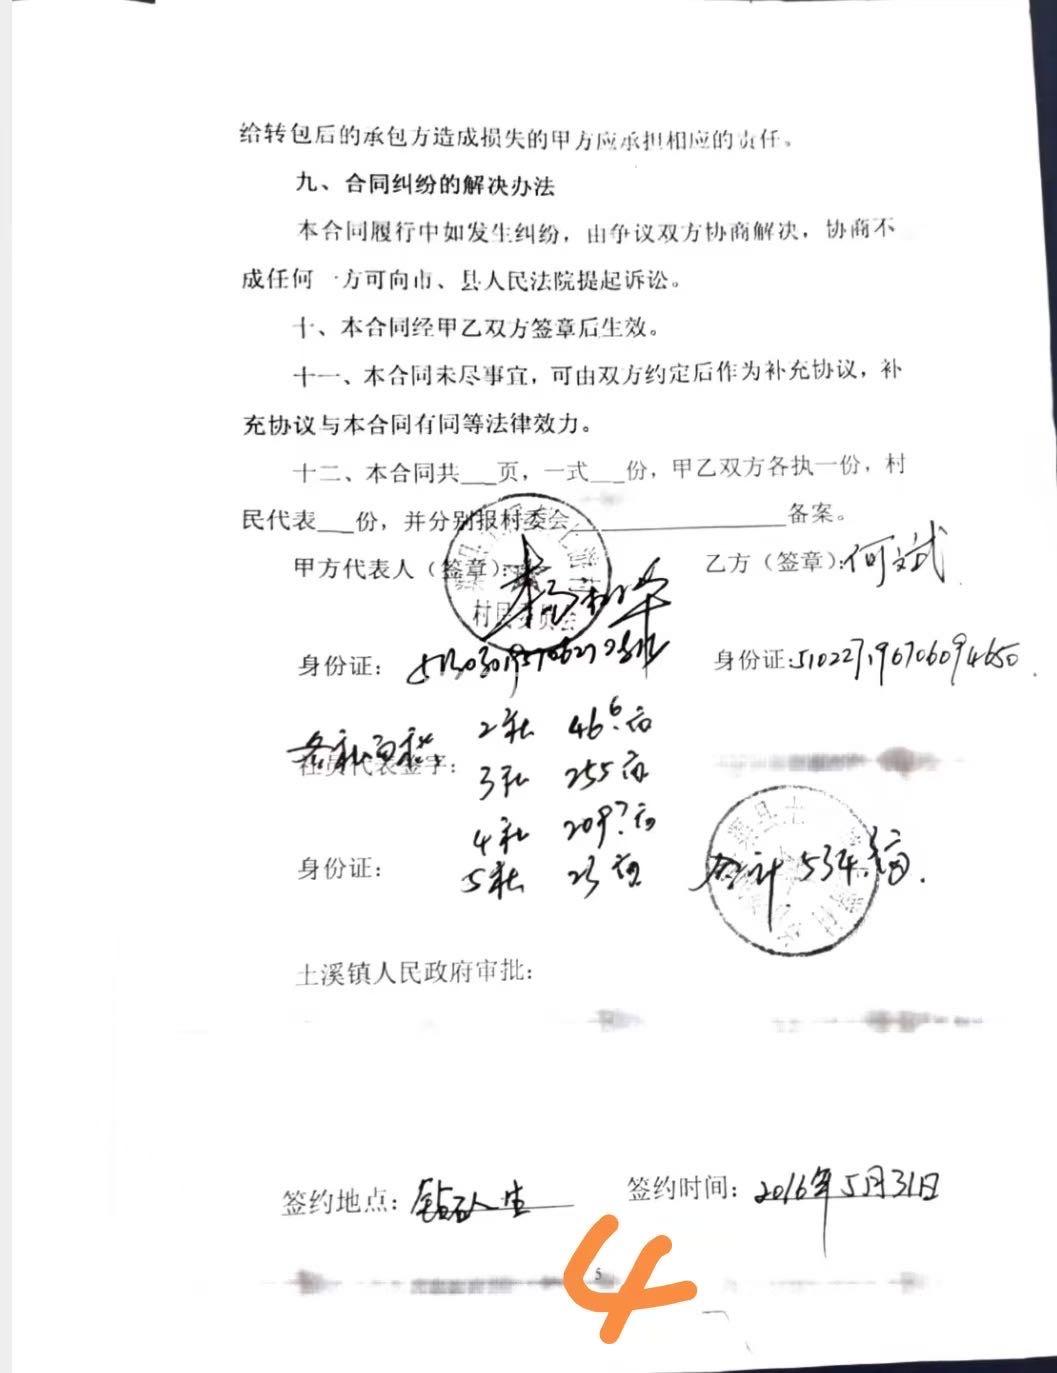 给转包后的承包方造成损失的甲方应承担相应的责任。
九、合同纠纷的解决办法
本合同履行中如发生纠纷，由争议双方协商解决，协商不
成任何一方可向市、县人民法院提起诉讼。
十、本合同经甲乙双方签章后生效。
十一、本合同未尽事宜，可由双方约定后作为补充协议，补
充协议与本合同有同等法律效力。
十二、本合同共___页，一式___份，甲乙双方各执一份，村
民代表___份，并分别报村委会________________备案。
甲方代表人（签章）： 乙方（签章）：何文武
村民委员会
身份证： 身份证：510227196706094650
2社 46.6亩
社员代表签字：
3社 255亩
4社 209.7亩
身份证： 5社 23亩 合计534.3亩.
土溪镇人民政府审批：
签约地点：钻石人生 签约时间：2016年5月31日
5
4